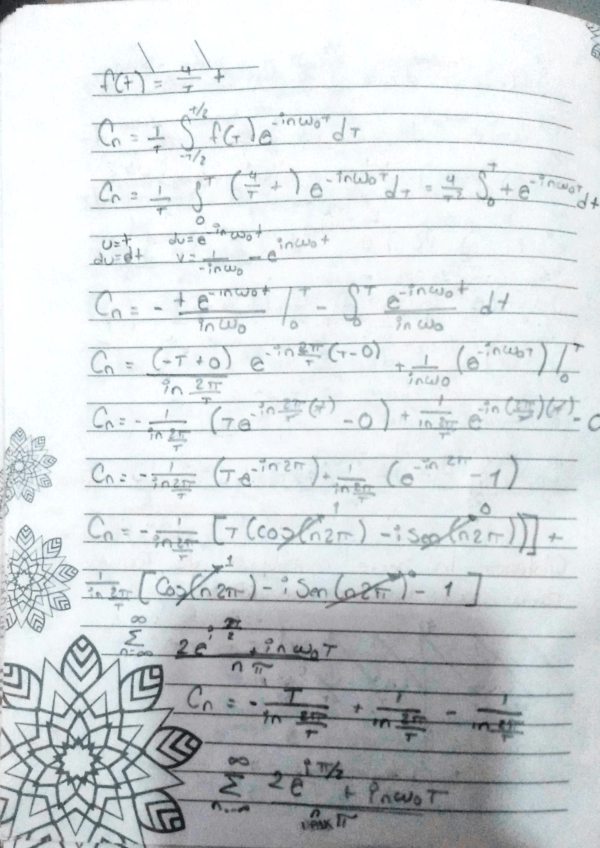 f(t) = 4/T t
Cn = 1/T ∫_{-T/2}^{T/2} f(T) e^{-inω₀T} dT
Cn = 1/T ∫_0^T (4/T t) e^{-inω₀T} dT = 4/T² ∫_0^T t e^{-inω₀T} dt
u=t dv=e^{-inω₀t}
du=dt v=1/(-inω₀) - e^{inω₀t}
Cn = - t e^{-inω₀t}/(inω₀) |_0^T - ∫_0^T e^{-inω₀t}/(inω₀) dt
Cn = (-T+0)/(in 2π/T) e^{-in 2π/T (T-0)} + 1/(inω₀) (e^{-inω₀T}) |_0^T
Cn = - 1/(in 2π/T) (T e^{-in 2π/T (T)} - 0) + 1/(in 2π/T) e^{-in(2π/T)(T)} - 0
Cn = - 1/(in 2π/T) (T e^{-in2π}) + 1/(in 2π/T) (e^{-in2π} - 1)
Cn = - 1/(in 2π/T) [T (cos(n2π) 1 - i Sen(n2π) 0)] +
1/(in 2π/T) [Cos(n2π) 1 - i Sen(n2π) 0 - 1]
∑_{n=-∞}^{∞} 2e^{i π/2 + inω₀T}/(nπ)
Cn = - T/(in 2π/T) + 1/(in 2π/T) - 1/(in 2π/T)
∑_{n=-∞}^{∞} 2e^{iπ/2 + inω₀T}/(nπ)